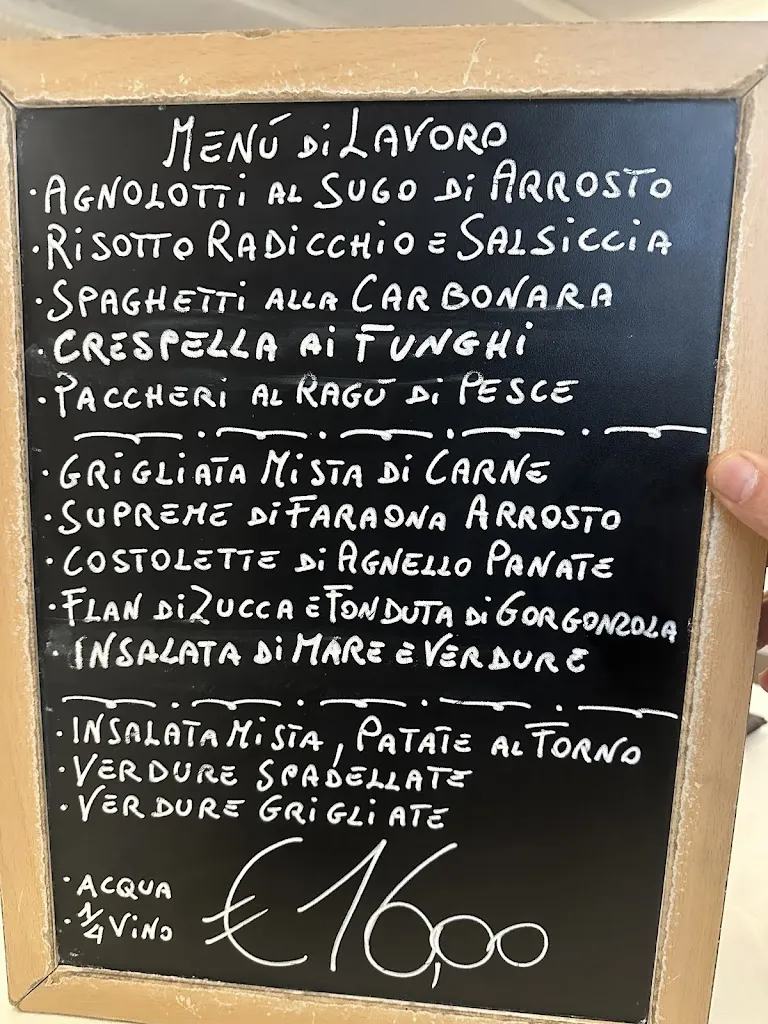 MENÚ DI LAVORO
· AGNOLOTTI AL SUGO DI ARROSTO
· RISOTTO RADICCHIO E SALSICCIA
· SPAGHETTI ALLA CARBONARA
· CRESPELLA AI FUNGHI
· PACCHERI AL RAGÚ DI PESCE
· GRIGLIATA MISTA DI CARNE
· SUPREME DI FARAONA ARROSTO
· COSTOLETTE DI AGNELLO PANATE
· FLAN DI ZUCCA E FONDUTA DI GORGONZOLA
· INSALATA DI MARE E VERDURE
· INSALATA MISTA, PATATE AL FORNO
· VERDURE SPADELLATE
· VERDURE GRIGLIATE
· ACQUA
· 1/4 VINO
€16,00